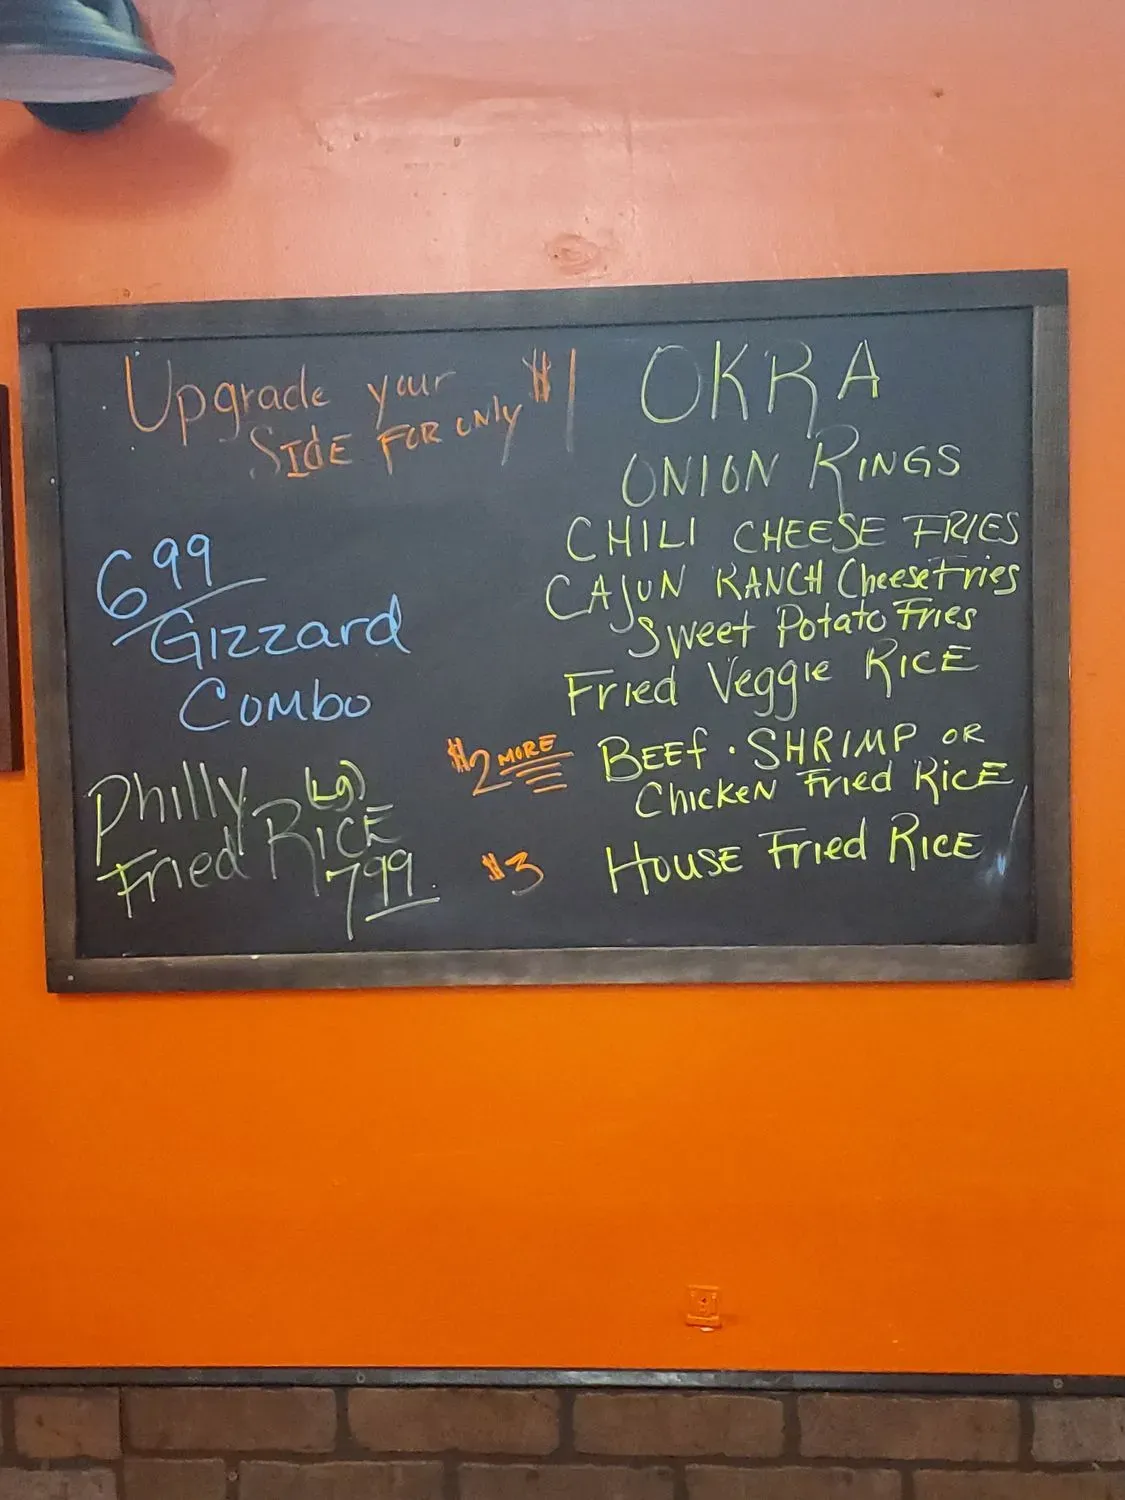 Upgrade your
SIdE FOR only $1
6 99
Gizzard
Combo
Philly (Lg)
Fried RICE
7 99
OKRA
ONION RINGS
CHILI CHEESE FRIES
CAJUN RANCH Cheese Fries
Sweet Potato Fries
Fried Veggie RICE
$2 MORE BEEF · SHRIMP OR
Chicken Fried RICE
$3 HOUSE Fried RICE